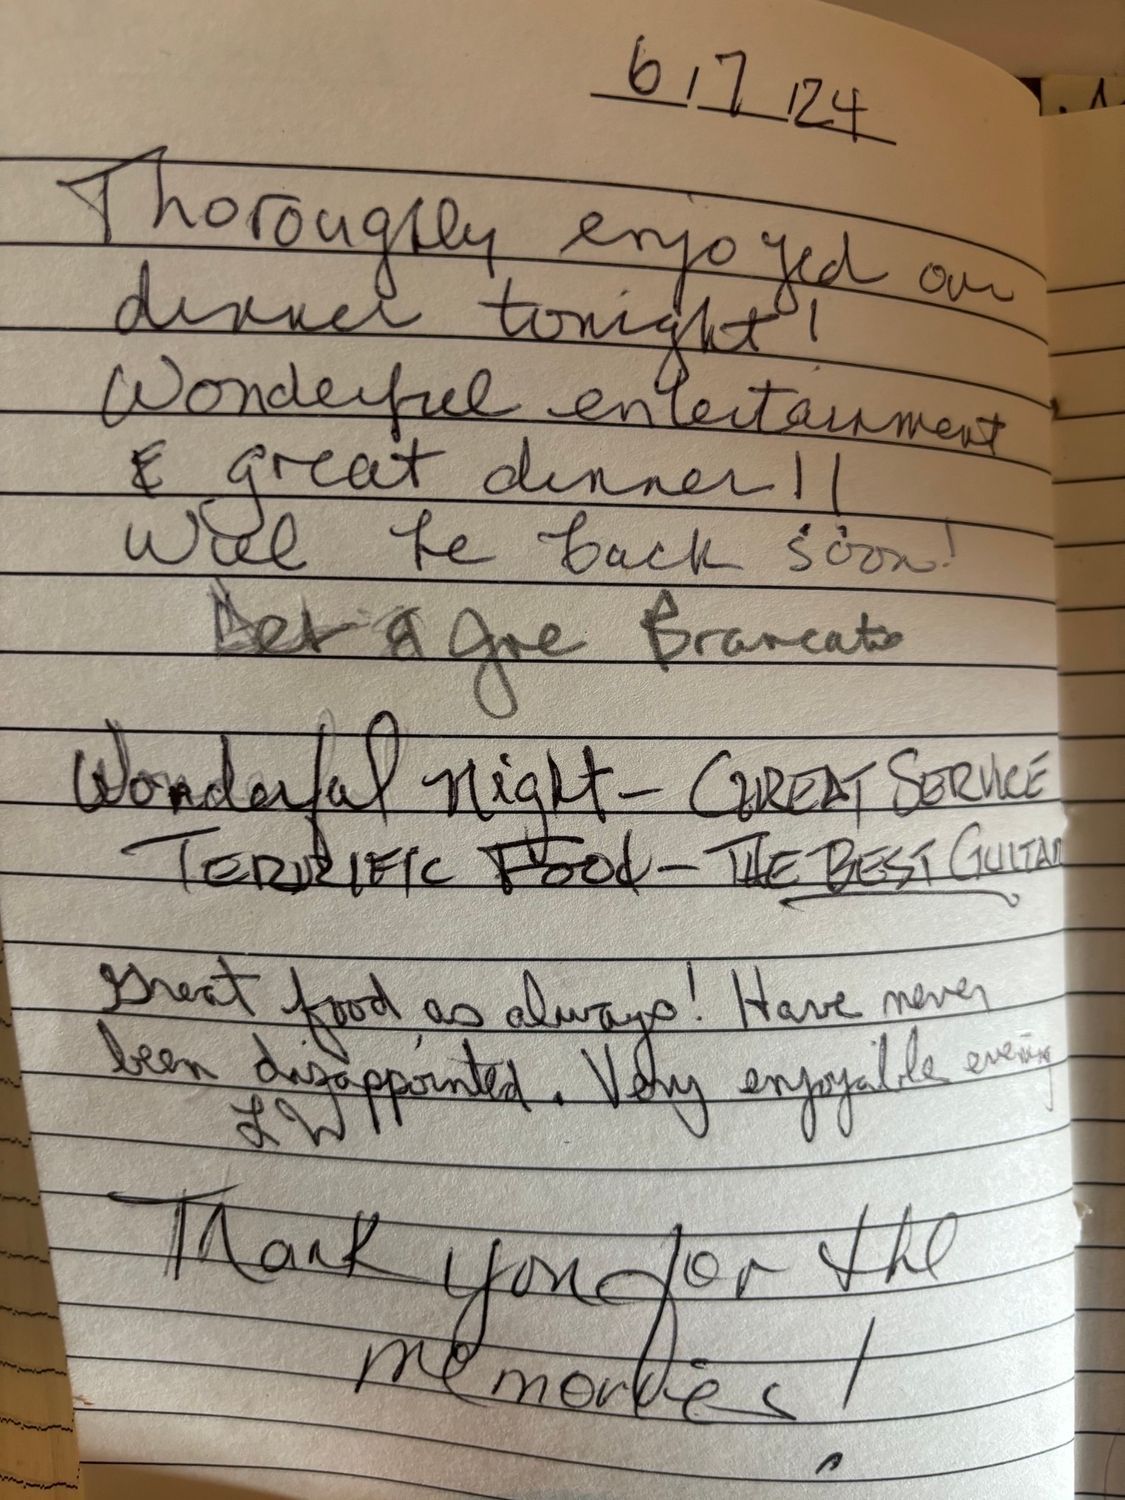 6/7/24
Thoroughly enjoyed our
dinner tonight!
Wonderful entertainment
& great dinner!!
Will be back soon!
& Joe Brancato
Wonderful Night - GREAT SERVICE
TERRIFIC Food - THE BEST GUITAR
Great food as always! Have never
been disappointed. Very enjoyable evening
LW
Thank you for the
memories!